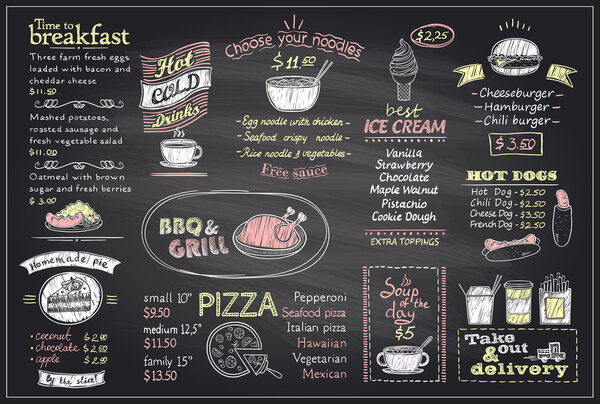 Time to
breakfast
Three farm fresh eggs
loaded with bacon and
cheddar cheese
$11.50
Mashed potatoes,
roasted sausage and
fresh vegetable salad
$11.00
Oatmeal with brown
sugar and fresh berries
$ 3.00
Homemade pie
• coconut $ 2.00
• chocolate $ 2.00
• apple $ 2.00
by the slice!
Hot
COLD
Drinks
Choose your noodles
$ 11.50
- Egg noodle with chicken -
- Seafood crispy noodle -
- Rice noodle & vegetables -
Free sauce
BBQ &
GRILL
small 10"
$9.50
medium 12,5"
$11.50
family 15"
$13.50
PIZZA
Pepperoni
Seafood pizza
Italian pizza
Hawaiian
Vegetarian
Mexican
$2,25
best
ICE CREAM
Vanilla
Strawberry
Chocolate
Maple Walnut
Pistachio
Cookie Dough
EXTRA TOPPINGS
Soup
of the
day
$5
- Cheeseburger -
- Hamburger -
- Chili burger -
$ 3.50
HOT DOGS
Hot Dog - $2.50
Chili Dog - $2.50
Cheese Dog - $3.50
French Dog - $2.50
Take
out
& delivery